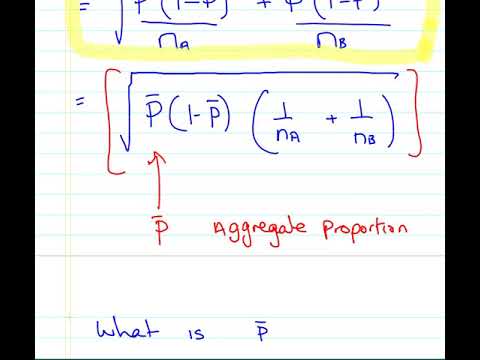 = √( P̄(1-P̄)/nA + P̄(1-P̄)/nB )
= [ √( P̄(1-P̄) (1/nA + 1/nB) ) ]
p̄ Aggregate Proportion
What is p̄